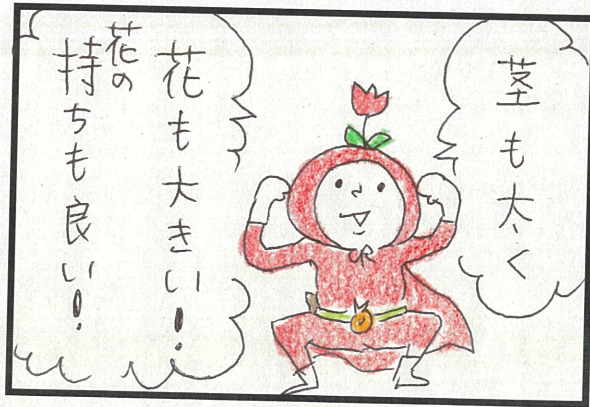 茎も太く
花も大きい！
花の
持ちも良い！